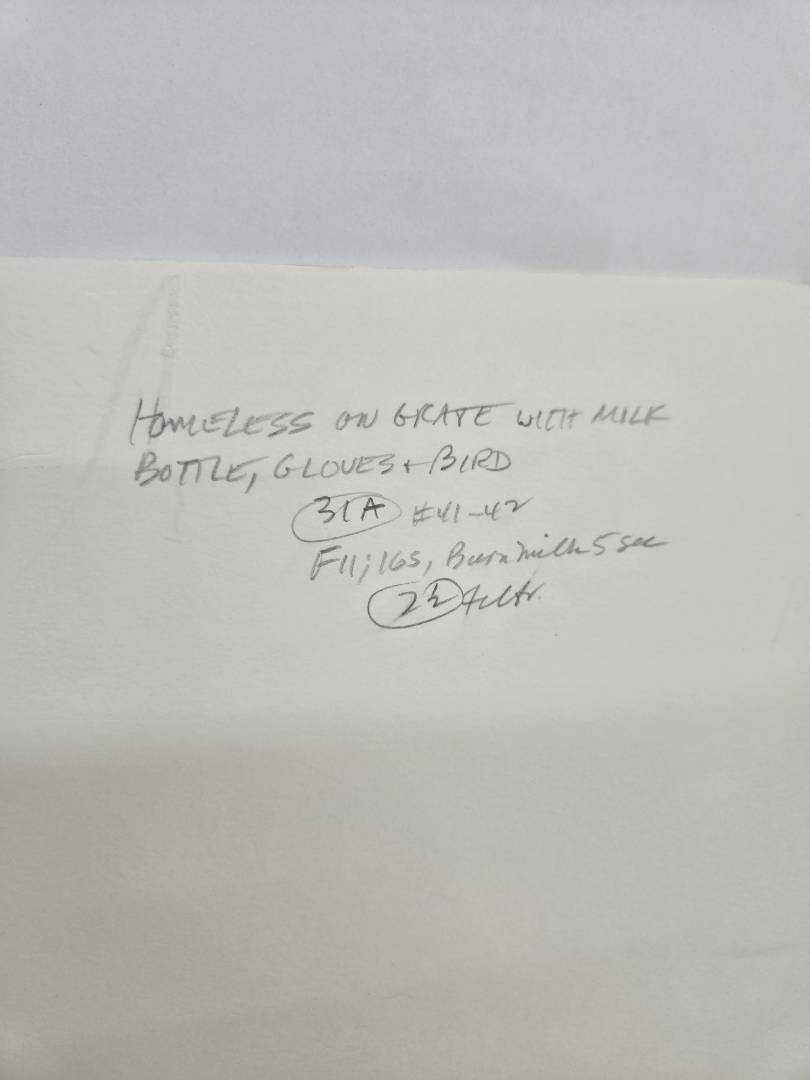 HOMELESS ON GRATE WITH MILK
BOTTLE, GLOVES + BIRD
31A #41-42
F11; 16S, Burn milk 5 sec
2½ filtr.